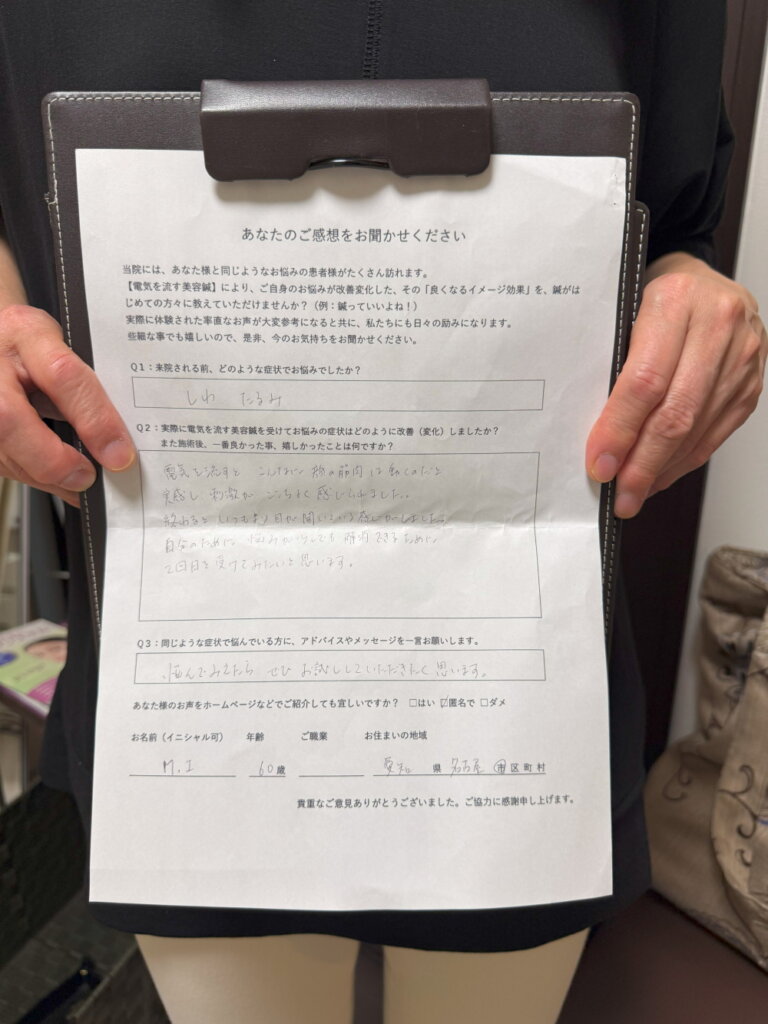 あなたのご感想をお聞かせください
当院には、あなた様と同じようなお悩みの患者様がたくさん訪れます。
【電気を流す美容鍼】により、ご自身のお悩みが改善変化した、その「良くなるイメージ効果」を、鍼がは
じめての方々に教えていただけませんか？（例：鍼っていいよね！）
実際に体験された率直なお声が大変参考になると共に、私たちにも日々の励みになります。
些細な事でも嬉しいので、是非、今のお気持ちをお聞かせください。
Q1：来院される前、どのような症状でお悩みでしたか？
しわ たるみ
Q2：実際に電気を流す美容鍼を受けてお悩みの症状はどのように改善（変化）しましたか？
また施術後、一番良かった事、嬉しかったことは何ですか？
電気を流すと こんなに 顔の筋肉は動くのだと
実感し 刺激が ここちよく 感じられました。
終わると いつもより 目が開いている感じがしました。
自分のために 悩みが少しでも 解消できるために
2回目を受けてみたいと思います。
Q3：同じような症状で悩んでいる方に、アドバイスやメッセージを一言お願いします。
悩んでみえたら ぜひ お試ししていただきたく 思います。
あなた様のお声をホームページなどでご紹介しても宜しいですか？ □はい ☑匿名で □ダメ
お名前（イニシャル可） 年齢 ご職業 お住まいの地域
M.I 60歳 愛知 県 名古屋 市区町村
貴重なご意見ありがとうございました。ご協力に感謝申し上げます。